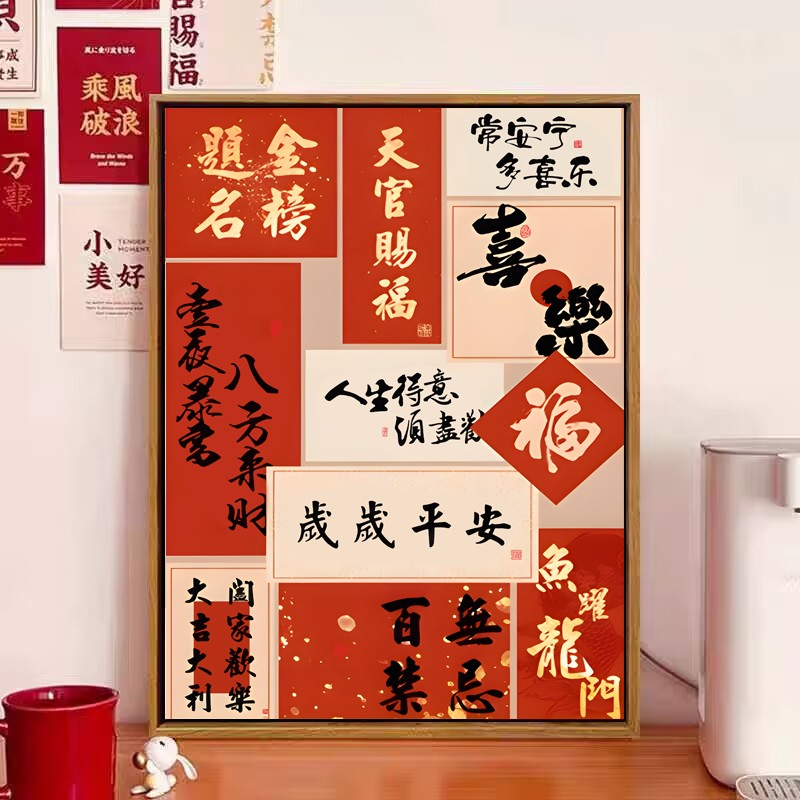 賜福
乘風
破浪
Brave the Winds
万事
小
美好
TENDER
MOMENT
金榜
題名
天官賜福
常安宁
多喜乐
喜
樂
八方来财
壹夜暴富
人生得意
須盡歡
福
歲歲平安
闔家歡樂
大吉大利
百無
禁忌
魚躍
龍門